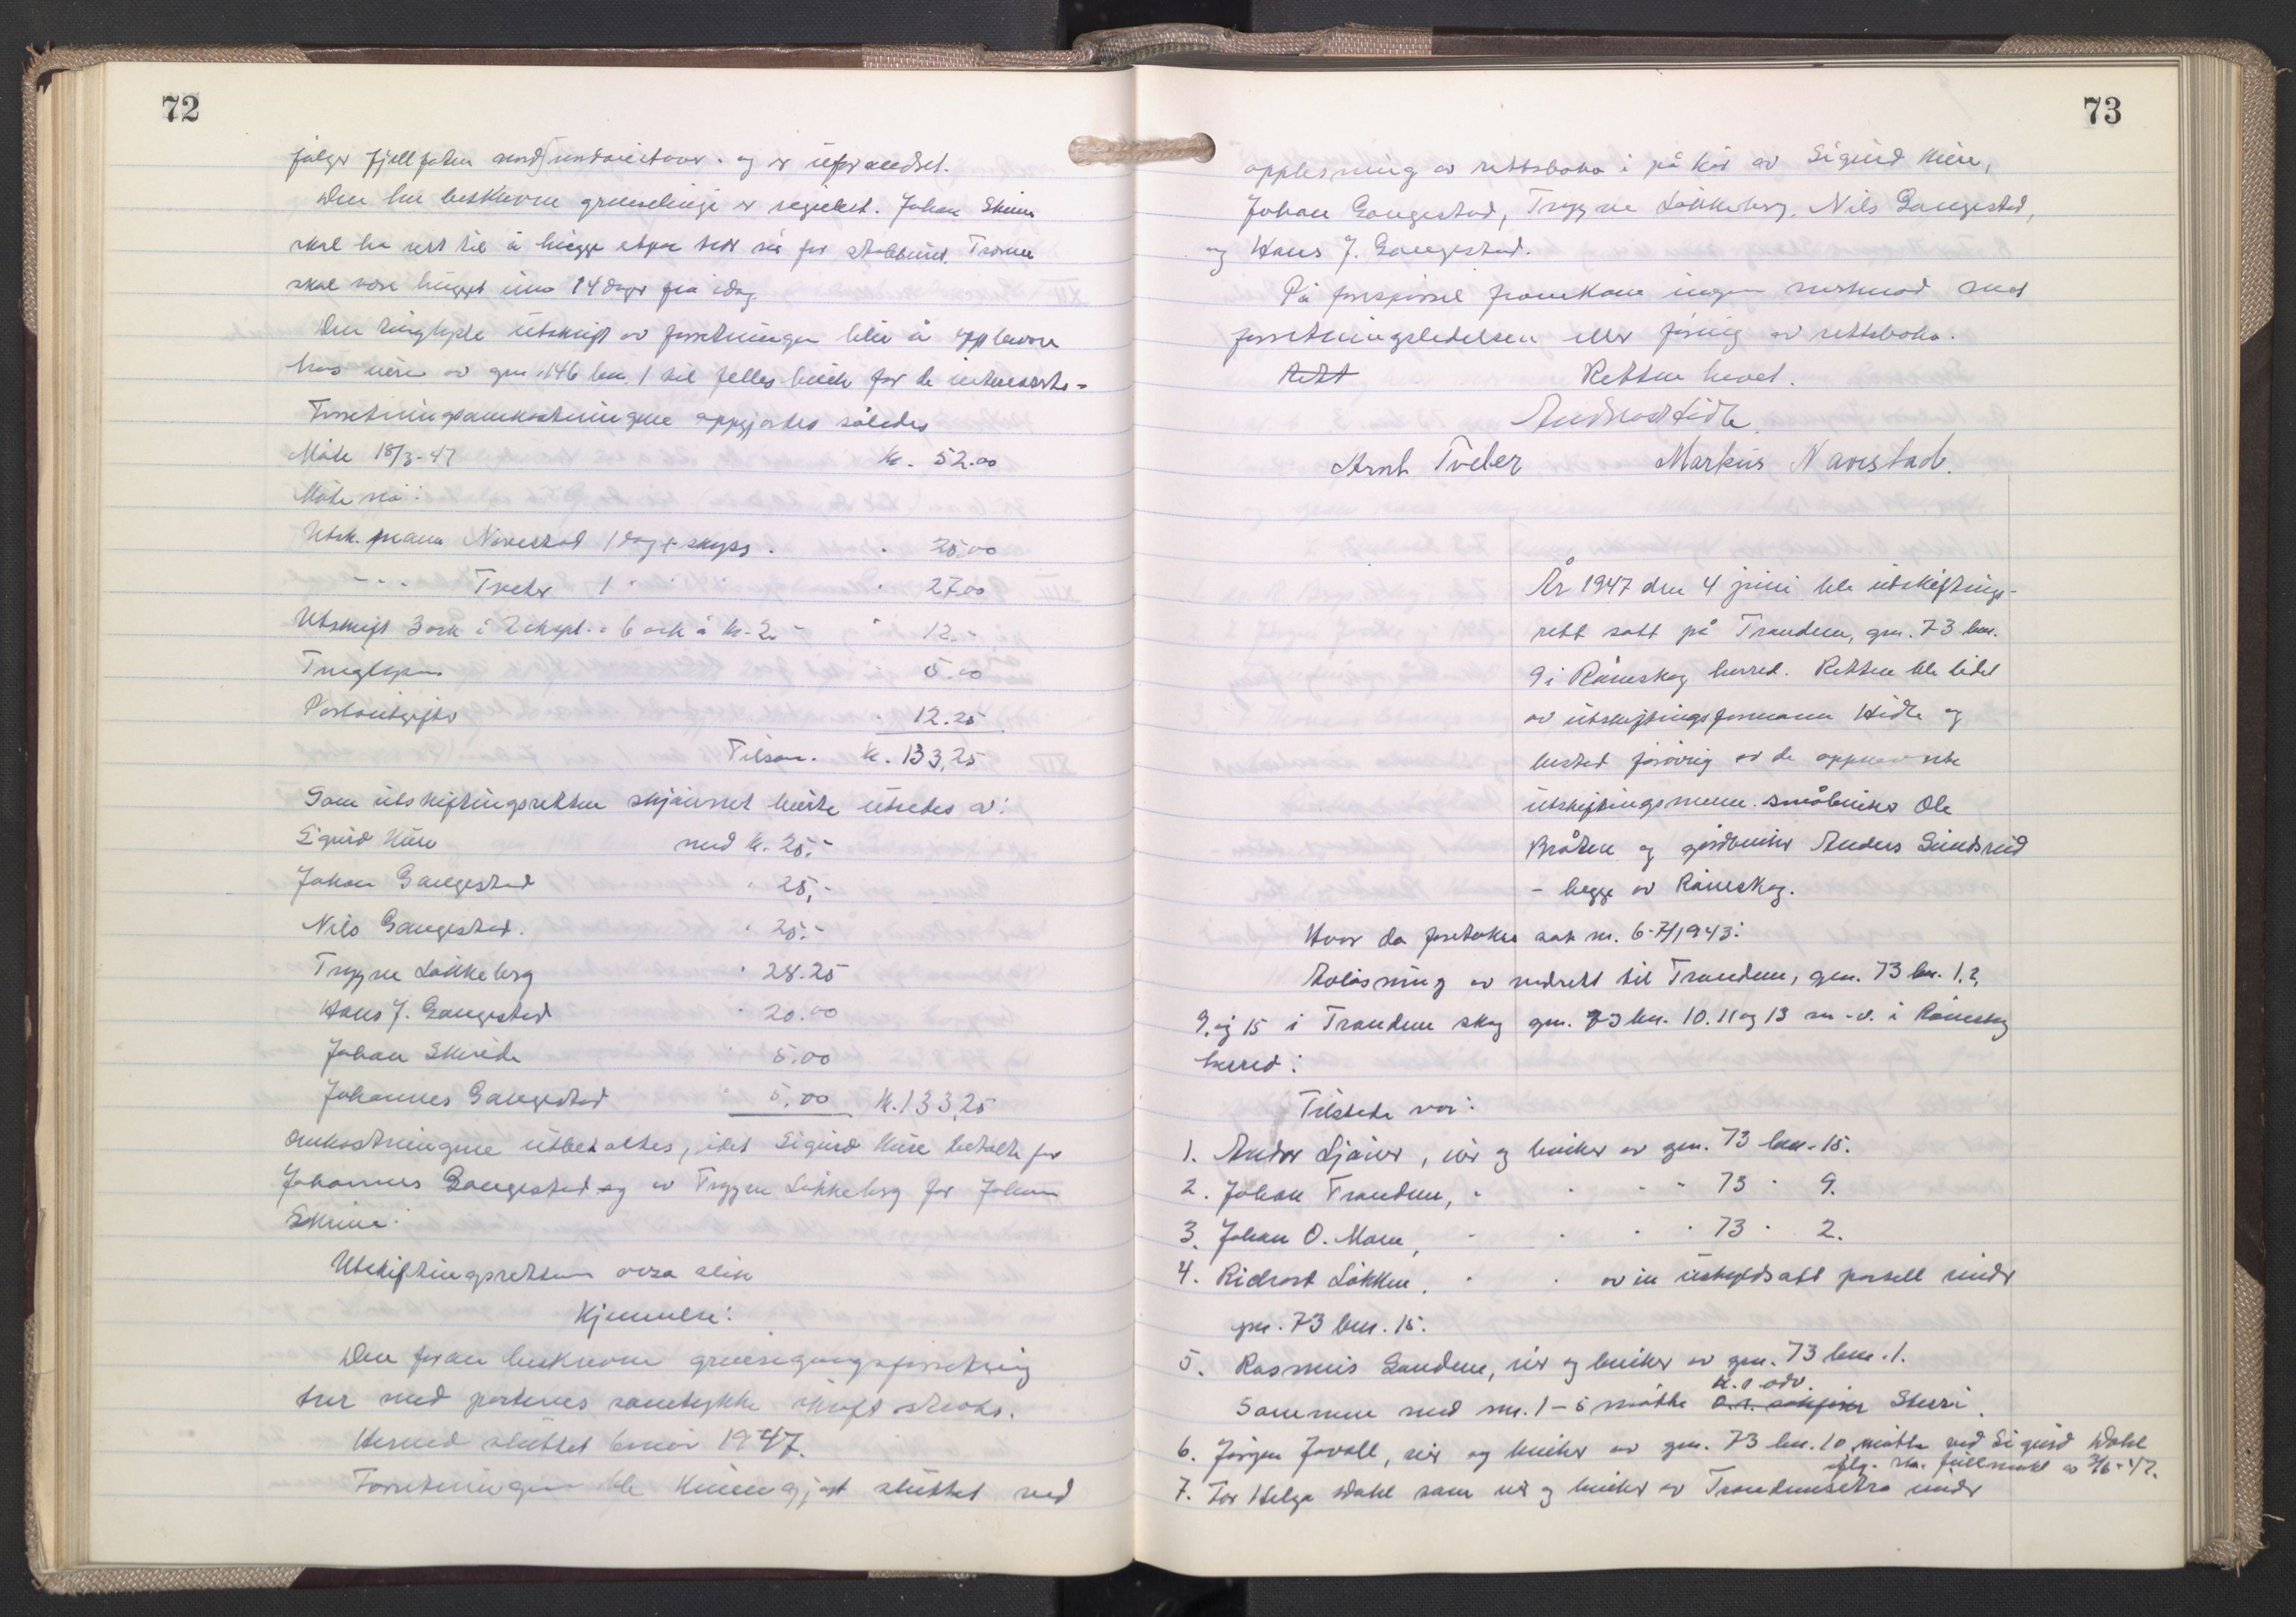 72
følger fjellfoten nordøndover. og er uforandret.
Den her beskrevne grenselinje er regulert. Johan Skune
skal ha rett til å hugge etpar trær når for stabburet. Trærne
skal være hugget innen 14 dager fra idag.
Den tinglyste utskrift av forretningen blir å opbevare
hos eieren av gnr. 146 bnr. 1 til felles bruk for de interesserte-
Forretningsomkostningene oppgjortes således
Møte 18/3-47 kr. 52.00
Møte nå:
Utsk. mann Navestad 1 dag + skyss . " 25.00
- " - Tveter 1 " " " " 27.00
Utskrift 3 ark i 2 ekspl. = 6 ark à kr. 2.- " 12.-
Tinglysn 5.00
Portoutgifter " 12.25
Tilsam. kr. 133,25
Som utskiftingsretten skjønnet burte utredes av:
Sigurd Huse med kr. 25.-
Johan Gaugestad " 25,-
Nils Gaugestad. " 25.-
Trygve Løkkeberg " 28.25
Hans J. Gaugestad " 20.00
Johan Skune " 5.00
Johannes Gaugestad " 5,00 kr. 133,25
Omkostningene utbetaltes, idet Sigurd Huse betalte for
Johannes Gaugestad og av Trygve Løkkeberg for Johan
Skune.
Utskiftingsretten avsa slik
Kjennelse:
Den foran beskrevne grensegangsforretning
har med partenes samtykke straks.
Hermed sluttet 6 mai 1947.
Forretningen ble kunngjort sluttet ved
73
opplesning av rettsboka i på hør av Sigurd Huse,
Johan Gaugestad, Trygve Løkkeberg, Nils Gaugestad,
og Hans J. Gaugestad.
På forespørsel framkom ingen merknad mot
forretningsledelsen eller føring av rettsboka.
Rett Retten hevet.
Andreas Hidle
Arnt Tveter Markus Navestad.
År 1947 den 4 juni ble utskiftings-
rett satt på Trandem, gnr. 73 bnr.
9 i Rømskog herred. Retten ble ledet
av utskiftingsformann Hidle og
bestod forøvrig av de oppnevnte
utskiftingsmenn. småbruker Ole
Bråten og gårdbruker Anders Sundsrud
- begge av Rømskog.
Hvor da foretokes sak nr. 6-7/1943:
Avløsning av vedrett til Trandem, gnr. 73 bnr. 1, 2,
9, og 15 i Trandem skog gnr. 73 bnr. 10. 11 og 13 m.v. i Rømskog
herred:
Tilstede var:
1. Andor Ljøner, eier og bruker av gnr. 73 bnr. 15.
2. Johan Trandem, " " " " 73 " 9.
3. Johan O. Moen, " " " " 73 " 2.
4. Ridvart Løkken, " " av en uskyldsatt parsell under
gnr. 73 bnr. 15.
5. Rasmus Sandem, eier og bruker av gnr. 73 bnr. 1.
h.r.adv.
Sammen med nr. 1-5 møtte o.r. sakfører Sterri.
6. Jørgen Jovall, eier og bruker av gnr. 73 bnr. 10 møtte ved Sigurd Dahl
iflg. skr. fullmakt av 3/6-47.
7. For Helga Dahl som eier og bruker av Trandemsetra under